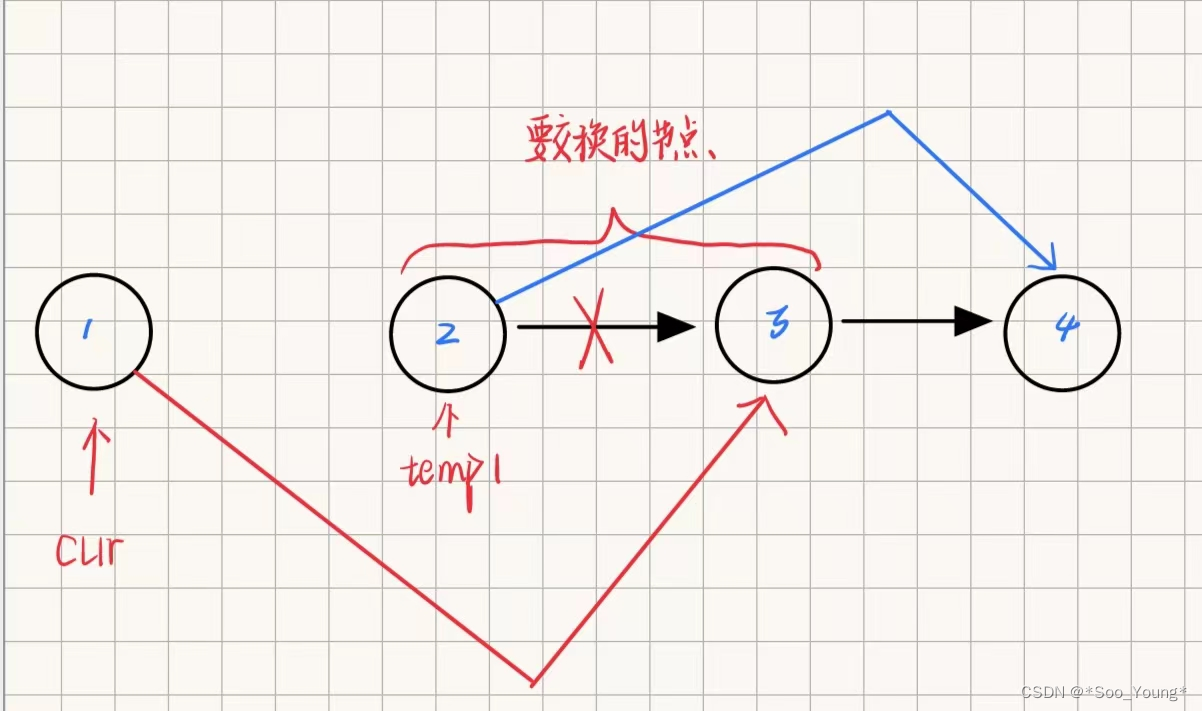 要交换的节点、
1
2
3
4
temp1
cur
CSDN @*Soo_Young*